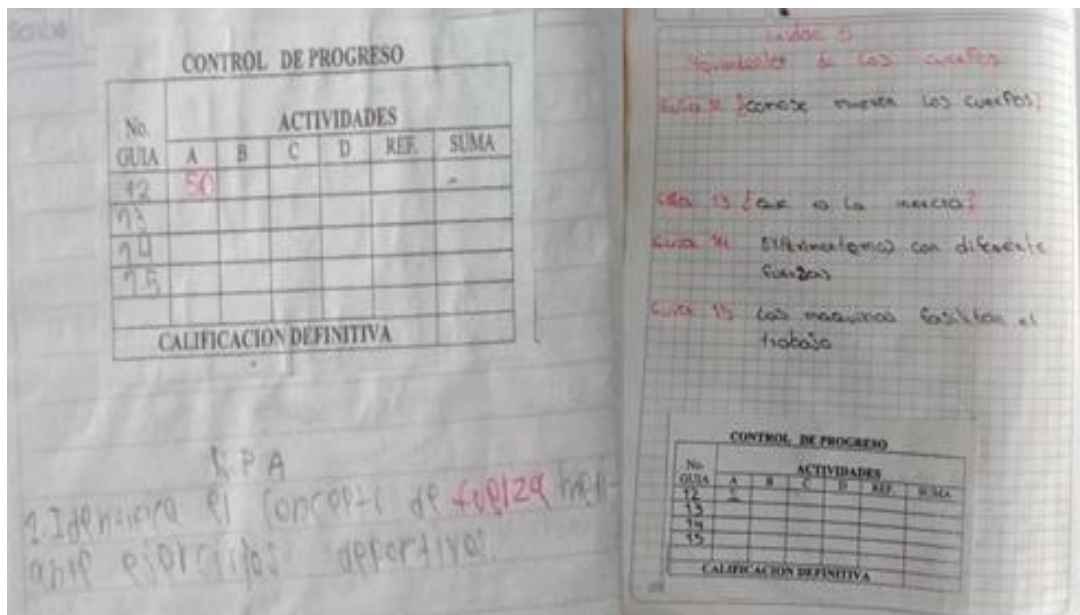 CONTROL DE PROGRESO
No. GUIA
ACTIVIDADES
A B C D REF. SUMA
12 50 -
13
14
15
CALIFICACION DEFINITIVA
D P A
1. Identifica el concepto de fuerza
ejercicios deportivos.
de los cuerpos
Guia 12 ¿como se mueven los cuerpos?
Guia 13 ¿Que es la inercia?
Guia 14 con diferente
fuerzas
Guia 15 Las maquinas el
trabajo
CONTROL DE PROGRESO
No. GUIA
ACTIVIDADES
A B C D REF. SUMA
12
13
14
15
CALIFICACION DEFINITIVA